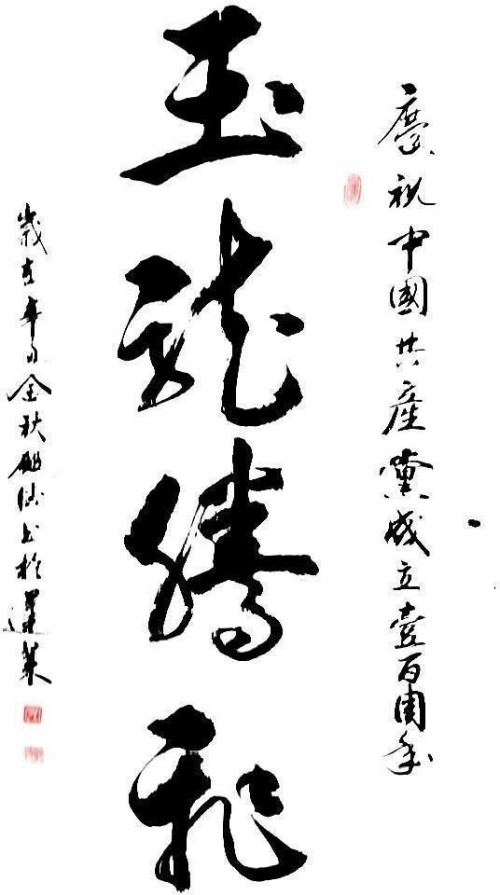 慶祝中國共產黨成立壹百周年
玉龍騰飛
歲在辛丑金秋书於蓬萊